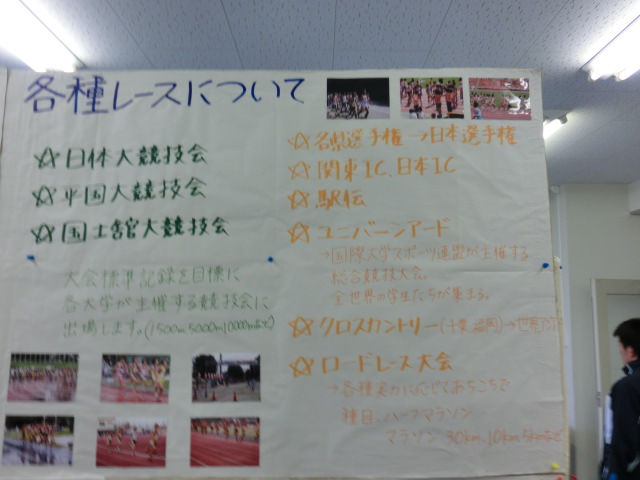 各種レースについて
☆日体大競技会
☆平国大競技会
☆国士舘大競技会
大会標準記録を目標に
各大学が主催する競技会に
出場します。(1500m、5000m、10000mなど)
☆各県選手権→日本選手権
☆関東IC、日本IC
☆駅伝
☆ユニバーシアード
→国際大学スポーツ連盟が主催する
総合競技大会。
全世界の学生たちが集まる。
☆クロスカントリー(千葉、福岡)→世界
☆ロードレース大会
→各種実力に応じてあちこちで
種目、ハーフマラソン
マラソン 30km、10km、5kmなど